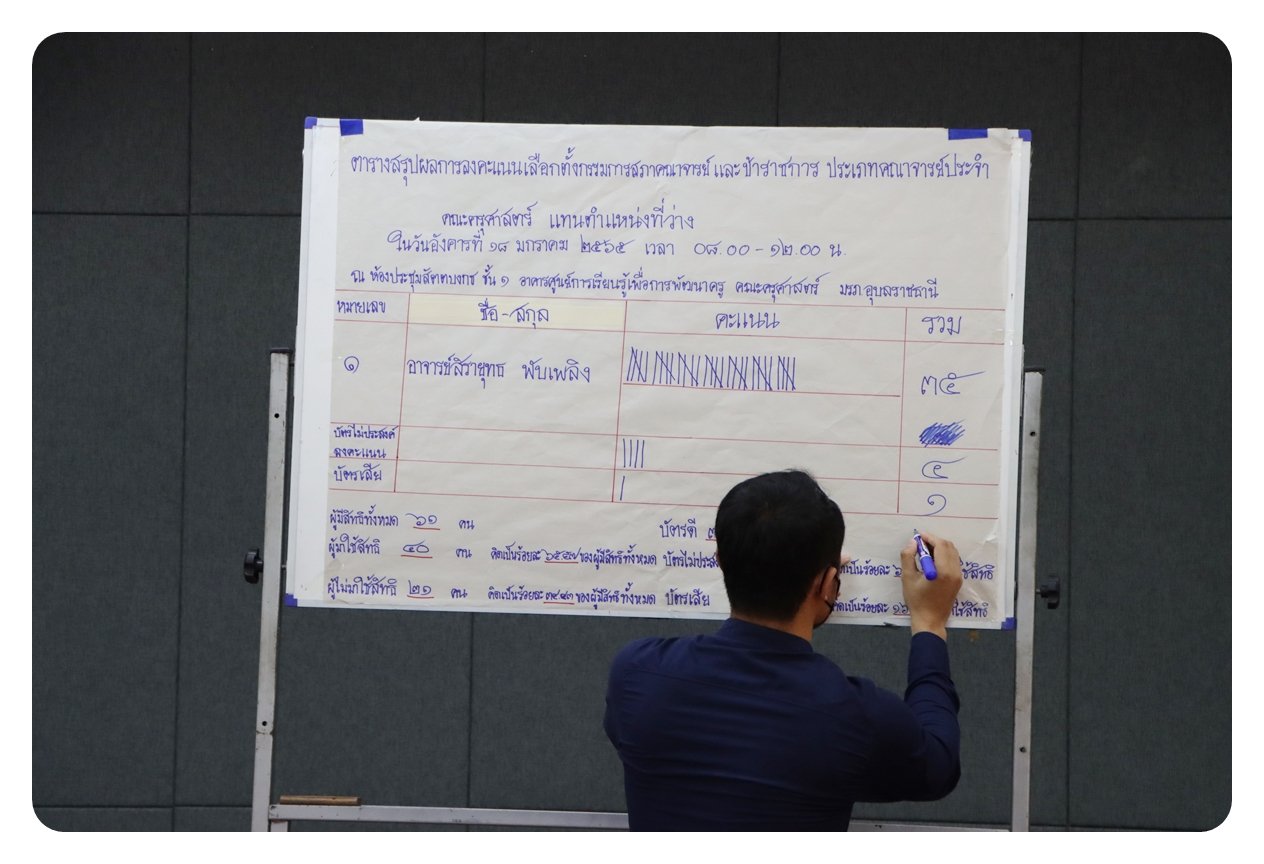 ตารางสรุปผลการลงคะแนนเลือกตั้งกรรมการสภาคณาจารย์และข้าราชการ ประเภทคณาจารย์ประจำ
คณะครุศาสตร์ แทนตำแหน่งที่ว่าง
ในวันอังคารที่ ๑๘ มกราคม ๒๕๖๕ เวลา ๐๘.๐๐ - ๑๒.๐๐ น.
ณ ห้องประชุมสัตตบงกช ชั้น ๑ อาคารศูนย์การเรียนรู้เพื่อการพัฒนาครู คณะครุศาสตร์ มรภ.อุบลราชธานี
หมายเลข ชื่อ - สกุล คะแนน รวม
๑ อาจารย์สิรายุทธ พับเพลิง ๓๕
บัตรไม่ประสงค์
ลงคะแนน ๔
บัตรเสีย ๑
ผู้มีสิทธิทั้งหมด ๖๑ คน บัตรดี
ผู้มาใช้สิทธิ ๔๐ คน คิดเป็นร้อยละ ๖๕.๕๗ ของผู้มีสิทธิทั้งหมด บัตรไม่ประสง คิดเป็นร้อยละ ใช้สิทธิ
ผู้ไม่มาใช้สิทธิ ๒๑ คน คิดเป็นร้อยละ ๓๔.๔๓ ของผู้มีสิทธิทั้งหมด บัตรเสีย คิดเป็นร้อยละ ใช้สิทธิ